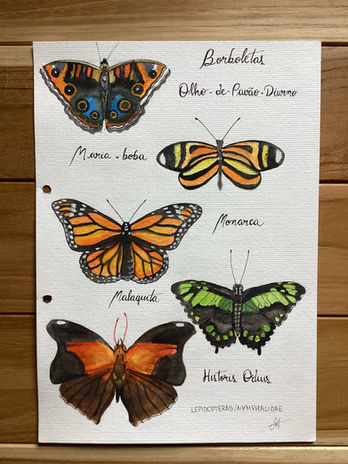 Borboletas
Olho-de-Pavão-Diurno
Maria-boba
Monarca
Malaquita
Historis Odius
LEPIDOPTERAS/NYMPHALIDAE